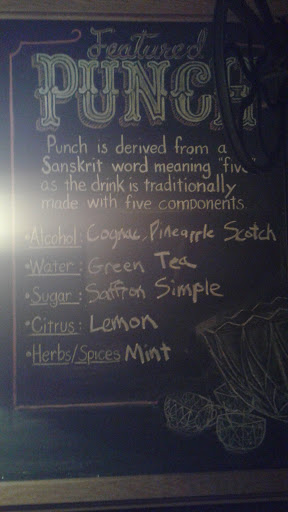 Featured
PUNCH
Punch is derived from a
Sanskrit word meaning "five"
as the drink is traditionally
made with five components.
•Alcohol: Cognac, Pineapple Scotch
•Water: Green Tea
•Sugar: Saffron Simple
•Citrus: Lemon
•Herbs/Spices Mint